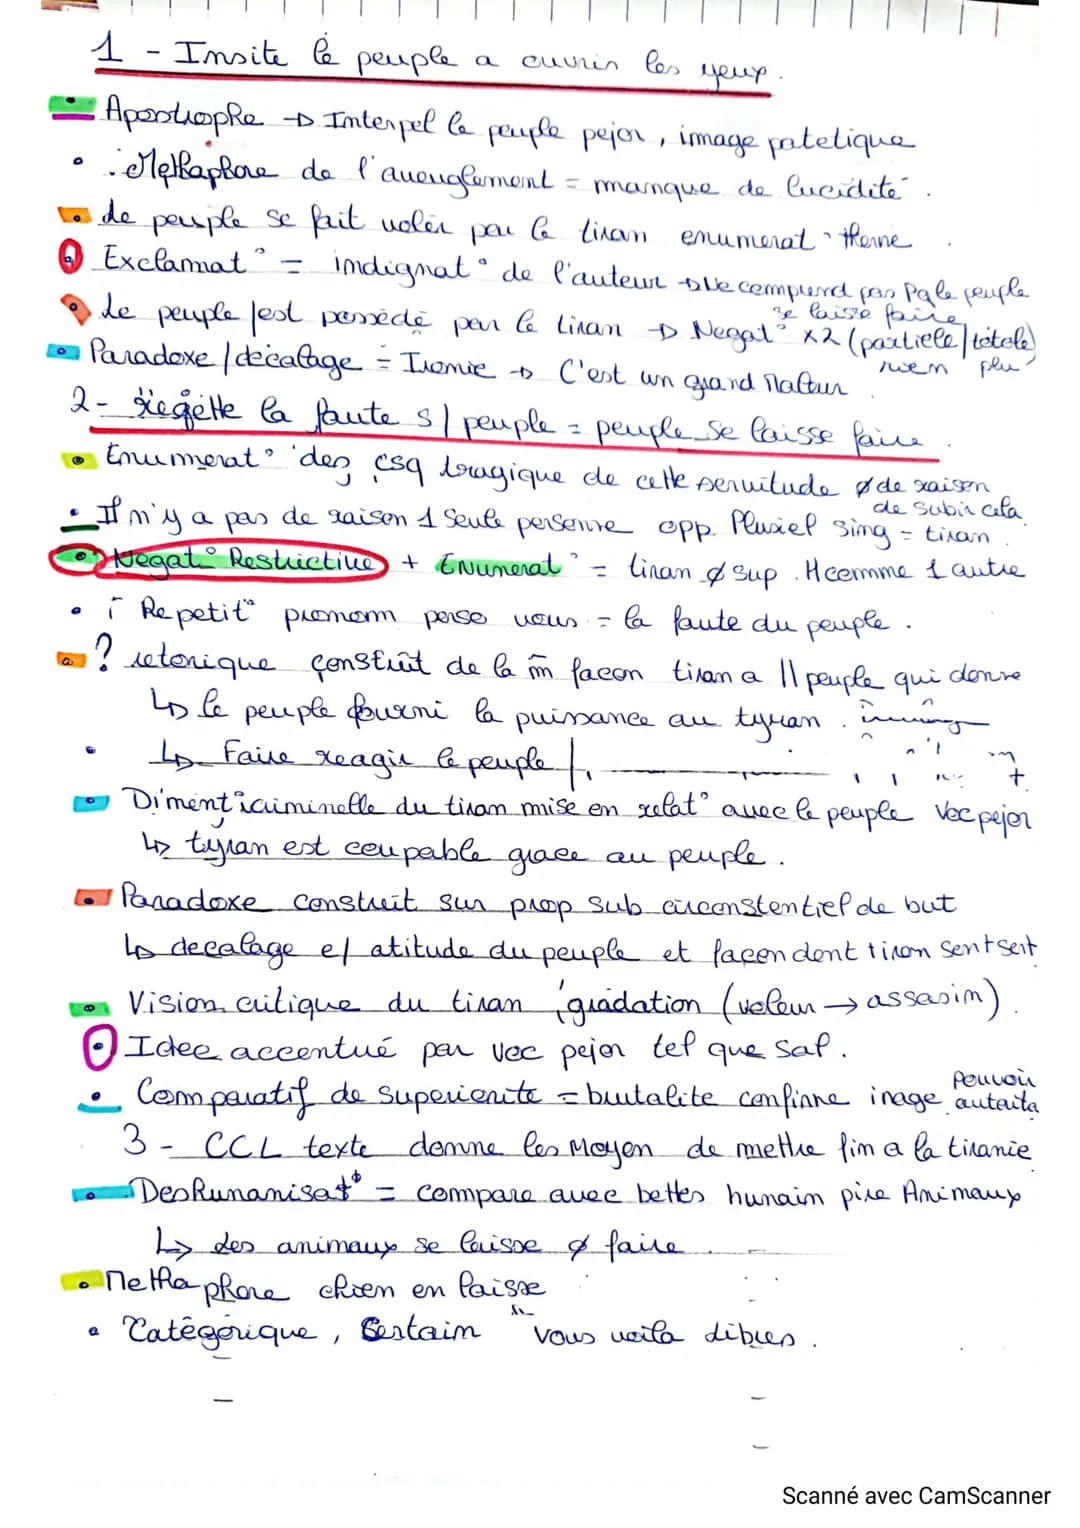 1 - Insite le peuple a ouvrir les yeux.
Apostrophe → Interpel le peuple pejor, image patetique
Methaphore de l'aveuglement = manque de lucidité.
Le peuple se fait voler par le tiran enumerat° terme
Exclamat° = indignat° de l'auteur → Ne comprend pas Pq le peuple
se laisse faire
Le peuple est possédé par le tiran → Negat° x2 (partiele/totale)
rien plu
Paradoxe / décalage = Ironie → C'est un grand Maleur
2 - Regette la faute s/ peuple = peuple se laisse faire.
Enumerat° des csq tragique de cette servitude Ø de raison
de subir cela.
Il n'y a pas de raison 1 seule personne opp. Pluriel sing = tiran.
Negat° Restrictive + Enumerat° = tiran Ø sup. Hcomme 1 autre
Repetit° pronom perso vous = la faute du peuple.
? retorique construit de la m̂ facon tiran a // peuple qui donne
↳ le peuple fourni la puissance au tyran.
↳ Faire reagir le peuple
Diment° criminelle du tiran mise en relat° avec le peuple Voc pejor
↳ tyran est coupable grace au peuple.
Paradoxe construit sur prop sub circonstentiel de but
↳ decalage e/ atitude du peuple et façon dont tiran s'ent sert
Vision critique du tiran gradation (voleur → assasim).
Idee accentué par voc pejor tel que sal.
Comparatif de superiorite = brutalite confirme image pouvoir
autorita
3 - CCL texte donne les moyen de mettre fin a la tiranie
Deshumanisat° = compare avec bettes humain pire Animaux
↳ des animaux se laisse Ø faire.
Methaphore chien en laisse
Catégorique, Certain "vous voila libres.
Scanné avec CamScanner